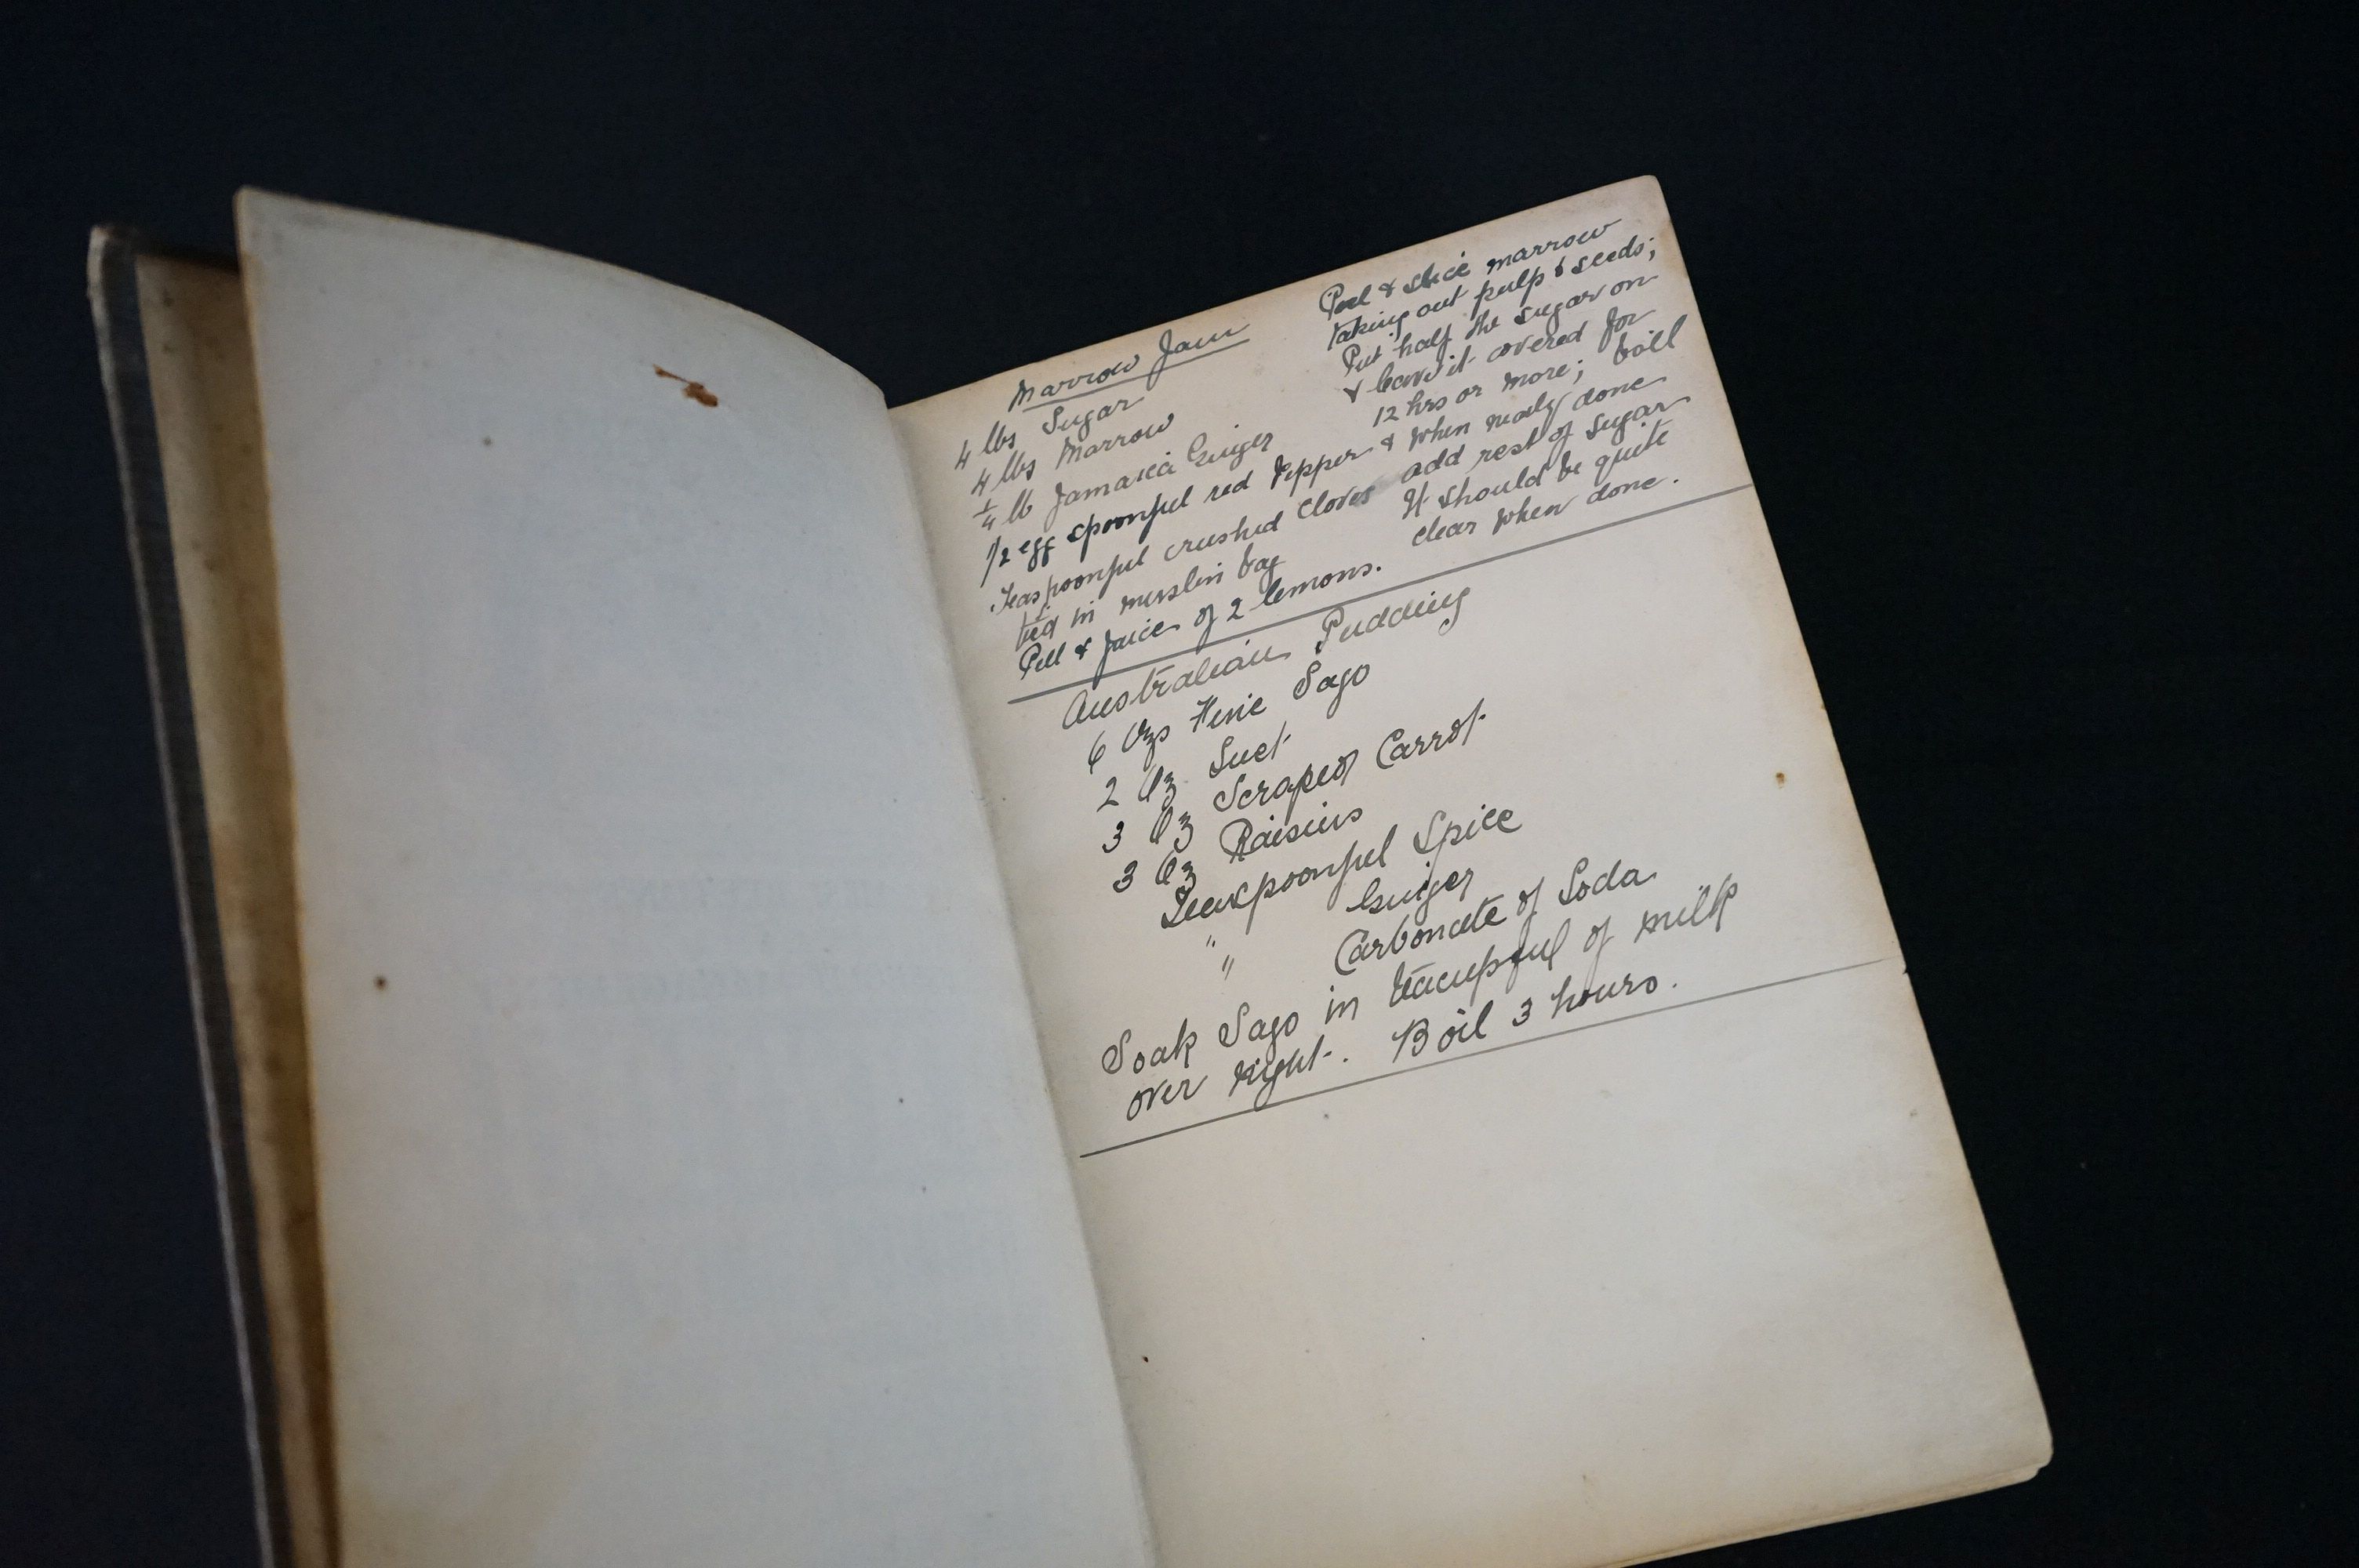 Marrow Jam
4 lbs Sugar
4 lbs Marrow
1/4 lb Jamaica Ginger
1/2 egg spoonful red Pepper &
Teaspoonful crushed Cloves
tied in muslin bag
Peel & Juice of 2 lemons.
Peel & slice marrow
taking out pulp & seeds;
Put half the sugar on
& leave it covered for
12 hrs or more; boil
when nearly done
add rest of sugar
It should be quite
clear when done.
Australian Pudding
6 Ozs Fine Sago
2 Oz Suet
3 Oz Scraped Carrot
3 Oz Raisins
Teaspoonful Spice
" Ginger
" Carbonate of Soda
Soak Sago in teacupful of milk
over night. Boil 3 hours.